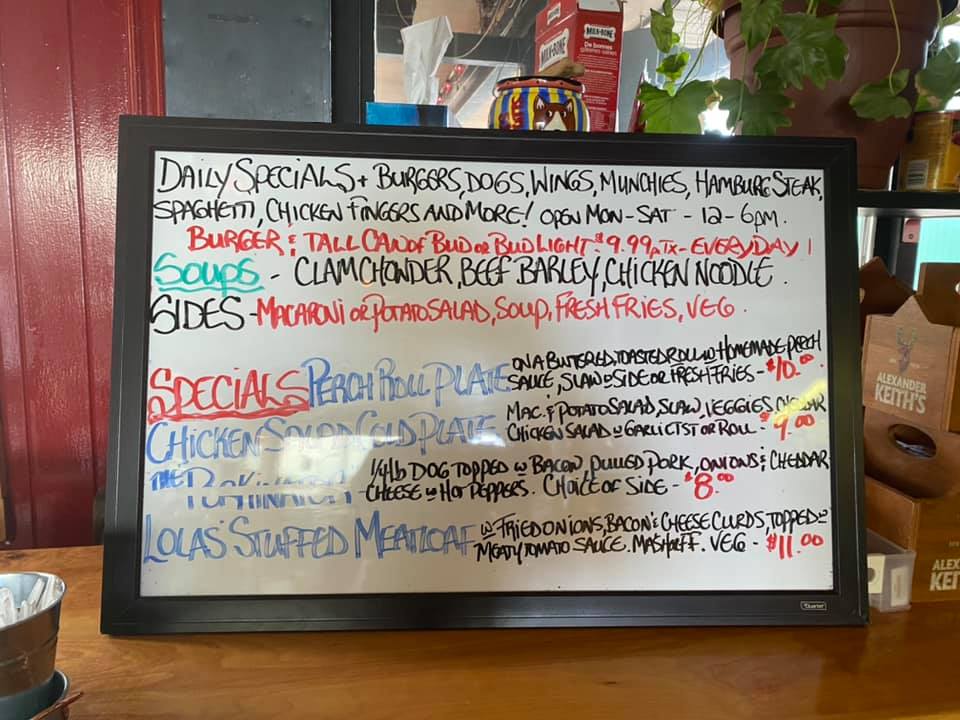 MILK-BONE
MILK-BONE
DAILY SPECIALS + BURGERS, DOGS, WINGS, MUNCHIES, HAMBURG STEAK,
SPAGHETTI, CHICKEN FINGERS AND MORE! OPEN MON-SAT - 12-6PM.
BURGER & TALL CAN OF BUD OR BUD LIGHT $9.99 pTX - EVERYDAY!
SOUPS - CLAM CHOWDER, BEEF BARLEY, CHICKEN NOODLE.
SIDES - MACARONI OR POTATO SALAD, SOUP, FRESH FRIES, VEG.
SPECIALS PERCH ROLL PLATE ON A BUTTERED, TOASTED ROLL W HOMEMADE PERCH
SAUCE, SLAW & SIDE OR FRESH FRIES - $10.00
CHICKEN SALAD COLD PLATE MAC. & POTATO SALAD, SLAW, VEGGIES, CHEDDAR
CHICKEN SALAD W GARLIC TST OR ROLL - $9.00
THE PORKINATOR 1/4 lb DOG TOPPED W BACON, PULLED PORK, ONIONS & CHEDDAR
CHEESE W HOT PEPPERS. CHOICE OF SIDE - $8.00
LOLAS' STUFFED MEATLOAF W FRIED ONIONS, BACON & CHEESE CURDS, TOPPED W
MEATY TOMATO SAUCE. MASH OR FF. VEG - $11.00
Quartet
ALEXANDER
KEITH'S